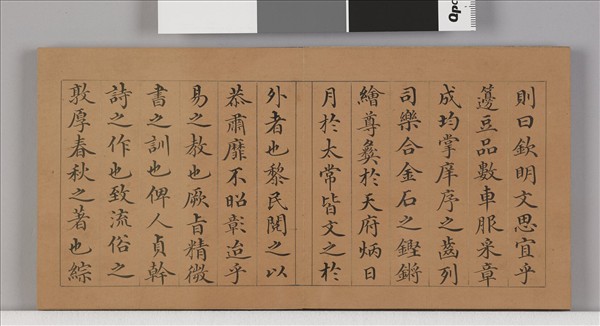 則曰欽明文思宜乎
籩豆品數車服采章
成均掌庠序之齒列
司樂合金石之鏗鏘
繪尊彝於天府炳日
月於太常皆文之於
外者也黎民閱之以
恭肅靡不昭彰迨乎
易之教也厥旨精微
書之訓也俾人貞幹
詩之作也致流俗之
敦厚春秋之著也綜